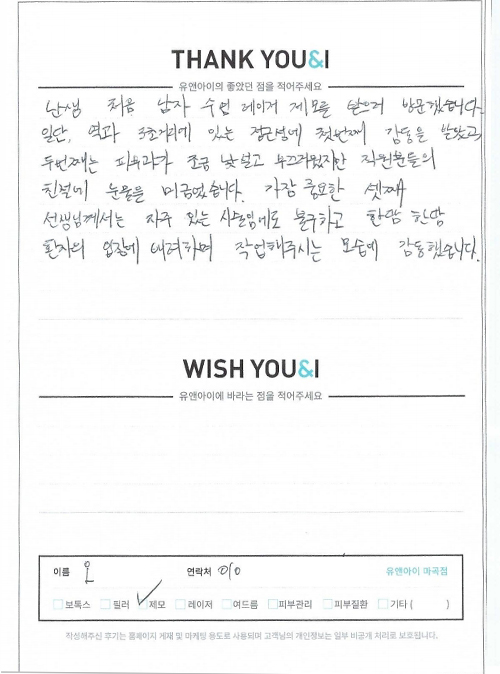 THANK YOU&I
유앤아이의 좋았던 점을 적어주세요
난생 처음 남자 수염 레이저 제모를 받으러 방문했습니다.
일단, 역과 3초거리에 있는 접근성에 첫번째 감동을 받았고
두번째는 피부과가 조금 낯설고 부끄러웠지만 직원분들의
친절에 눈물을 머금었습니다. 가장 중요한 셋째
선생님께서는 자주 있는 시술임에도 불구하고 한땀 한땀
환자의 입장에 배려하며 작업해주시는 모습에 감동했습니다.
WISH YOU&I
유앤아이에 바라는 점을 적어주세요
이름 연락처 010 유앤아이 마곡점
보톡스 필러 제모 레이저 여드름 피부관리 피부질환 기타 ( )
작성해주신 후기는 홈페이지 게재 및 마케팅 용도로 사용되며 고객님의 개인정보는 일부 비공개 처리로 보호됩니다.